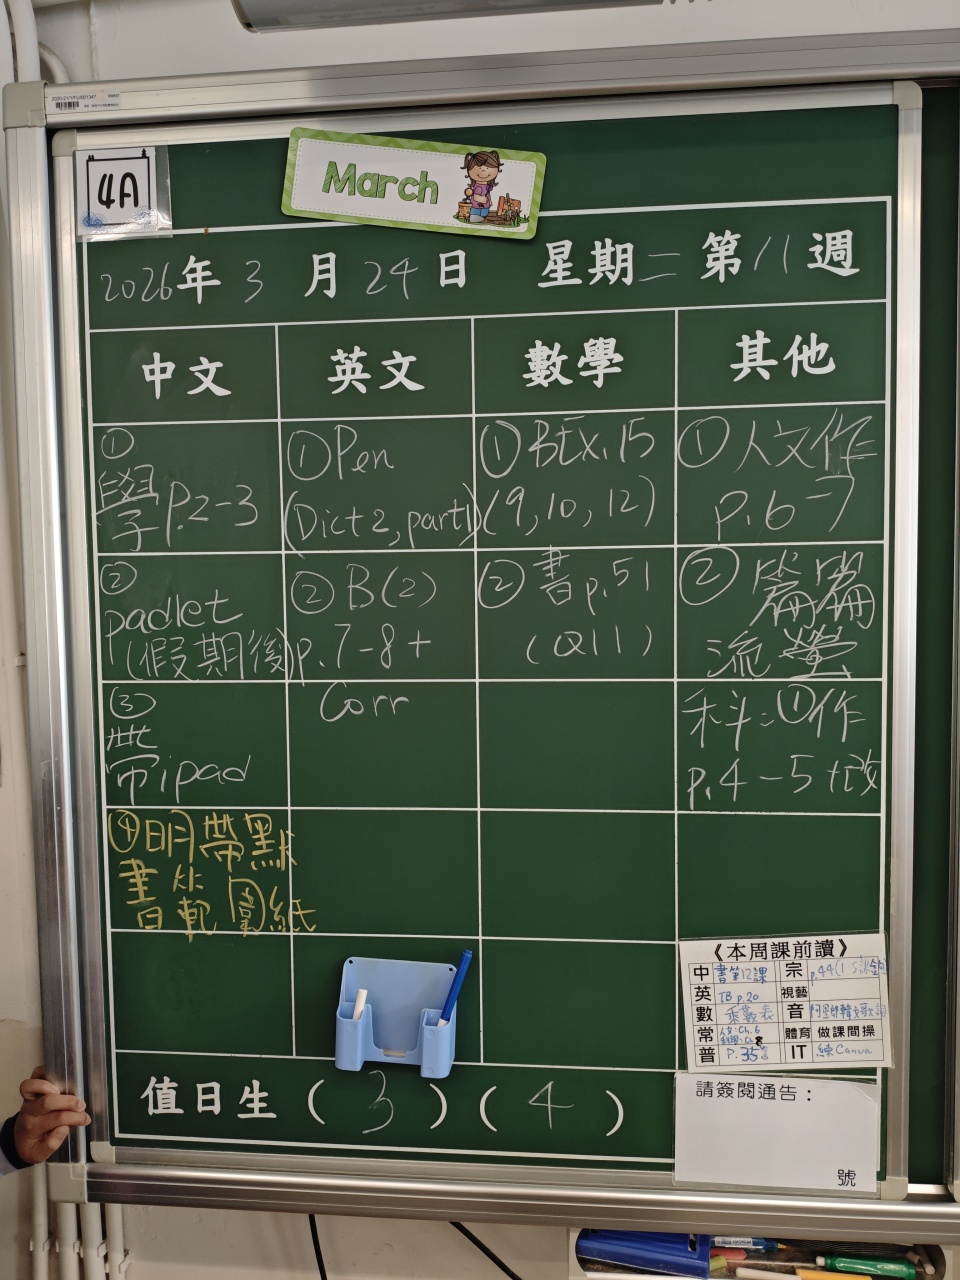 4A
March
2026年3月24日 星期二 第11週
中文 英文 數學 其他
①
學 p.2-3
②
padlet
(假期後)
③
帶ipad
④明帶默
書範圍紙
①Pen
(Dict 2, part1)
②B(2)
p.7-8+
Corr
①BEx.15
(9, 10, 12)
②書p.51
(Q11)
①人文作
p.6-7
②篇篇
流螢
科:①作
p.4-5+改
《本周課前讀》
中 書第12課 宗 p.44
英 TB p.20 視藝
數 乘數表 音
常 人文:Ch.6 體育 做課間操
普 P.35 IT 練Canva
請簽閱通告:
號
值日生 (3)(4)